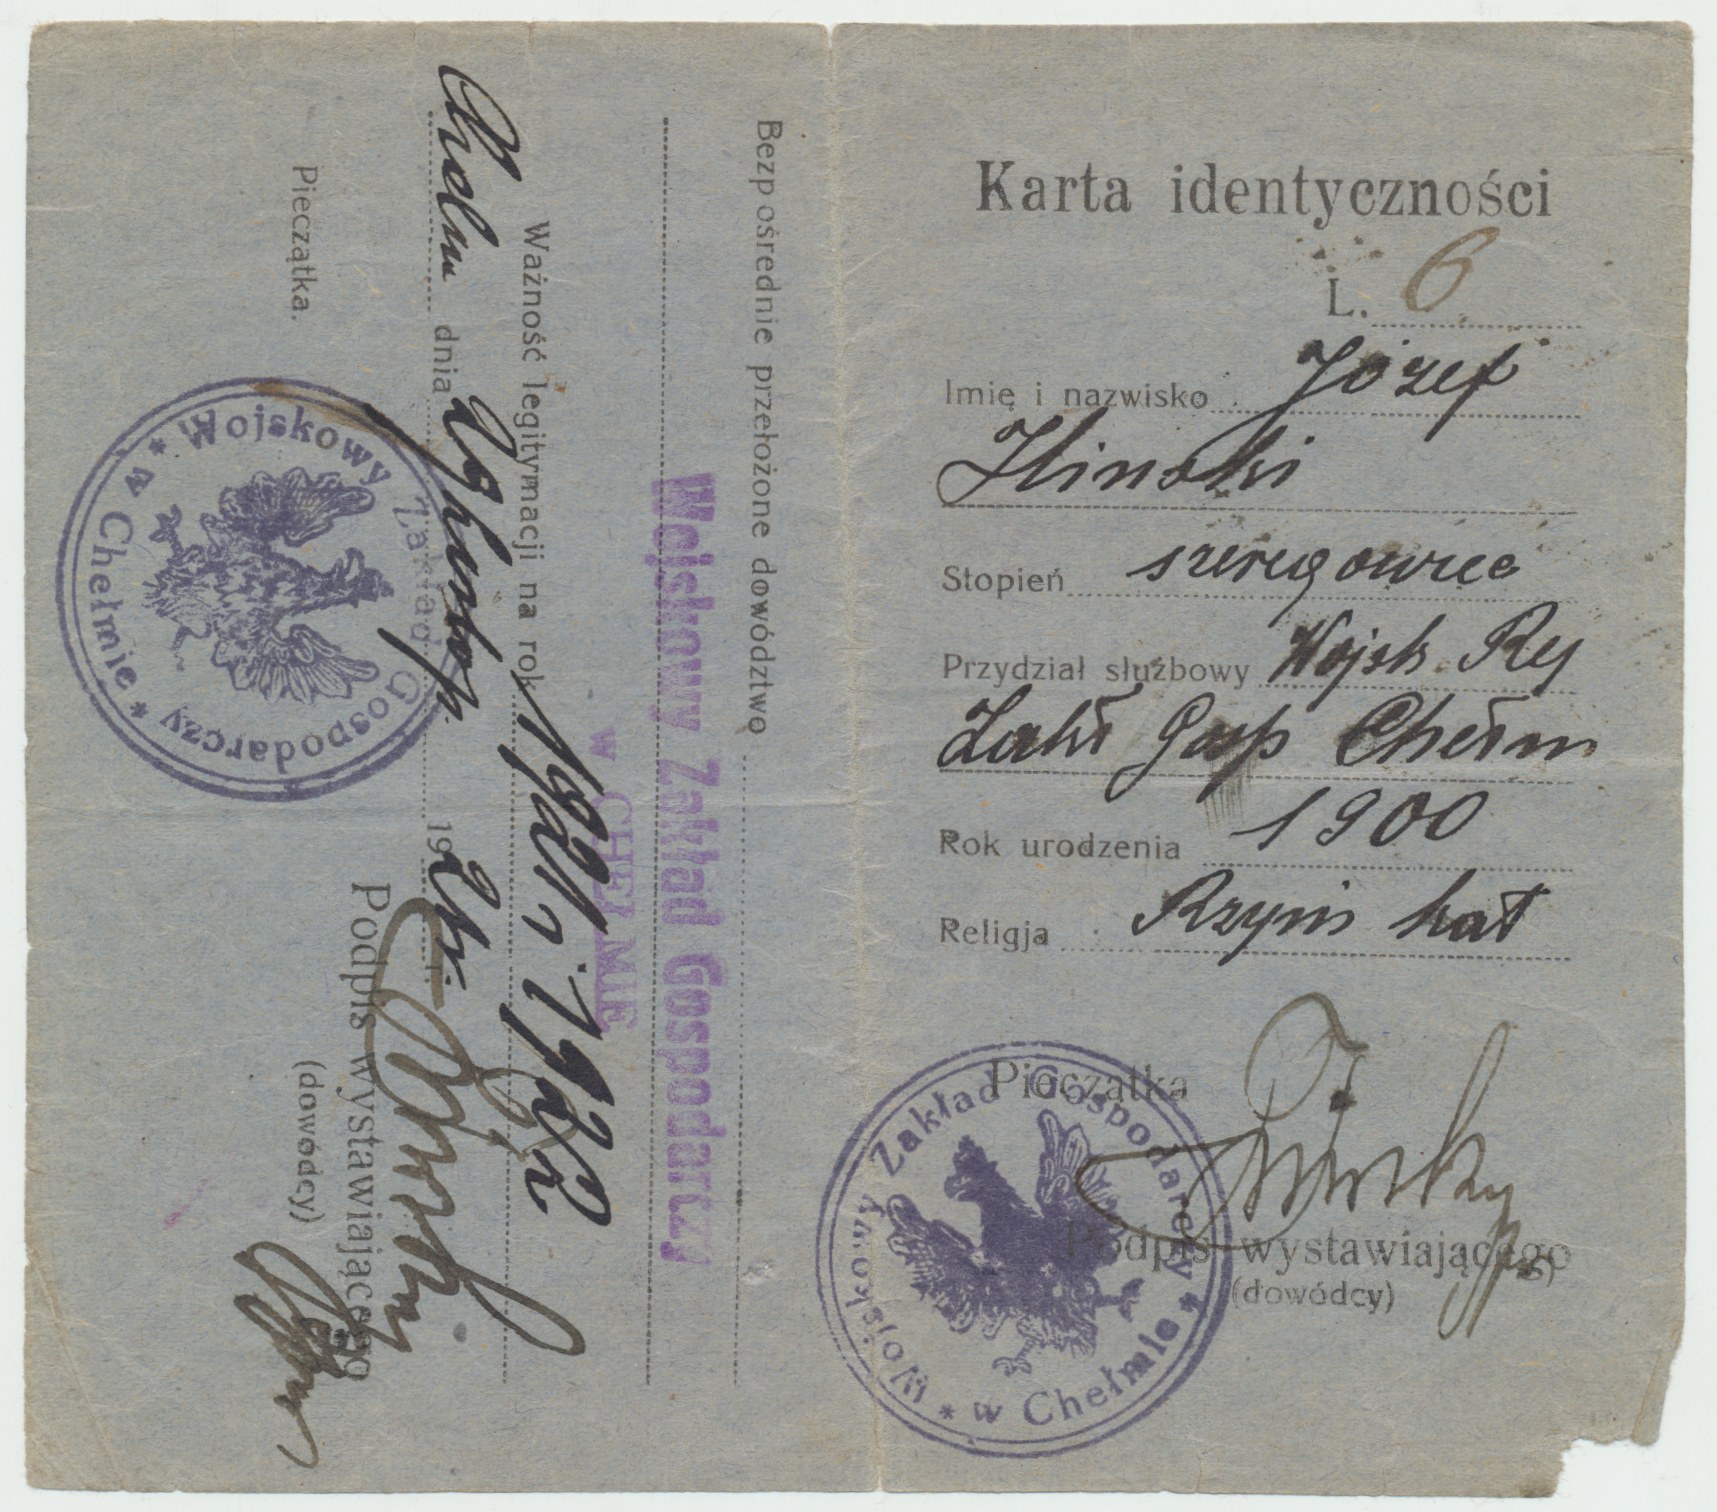 Karta identyczności
L. 6
Imię i nazwisko Józef
Ilinski
Stopień szeregowiec
Przydział służbowy Wojsk Rej
Zakł Gosp Chełm
Rok urodzenia 1900
Religja Rzym kat
Pieczątka
Podpis wystawiającego
(dowódcy)
Wojskowy Zakład Gospodarczy * w Chełmie *
Bezpośrednie przełożone dowództwo
Wojskowy Zakład Gospodarczy
w CHEŁMIE
Ważność legitymacji na rok 1921 1922
Chełm dnia 29 listop. 1921r.
Pieczątka.
Podpis wystawiającego
(dowódcy)
* Wojskowy Zakład Gospodarczy * w Chełmie